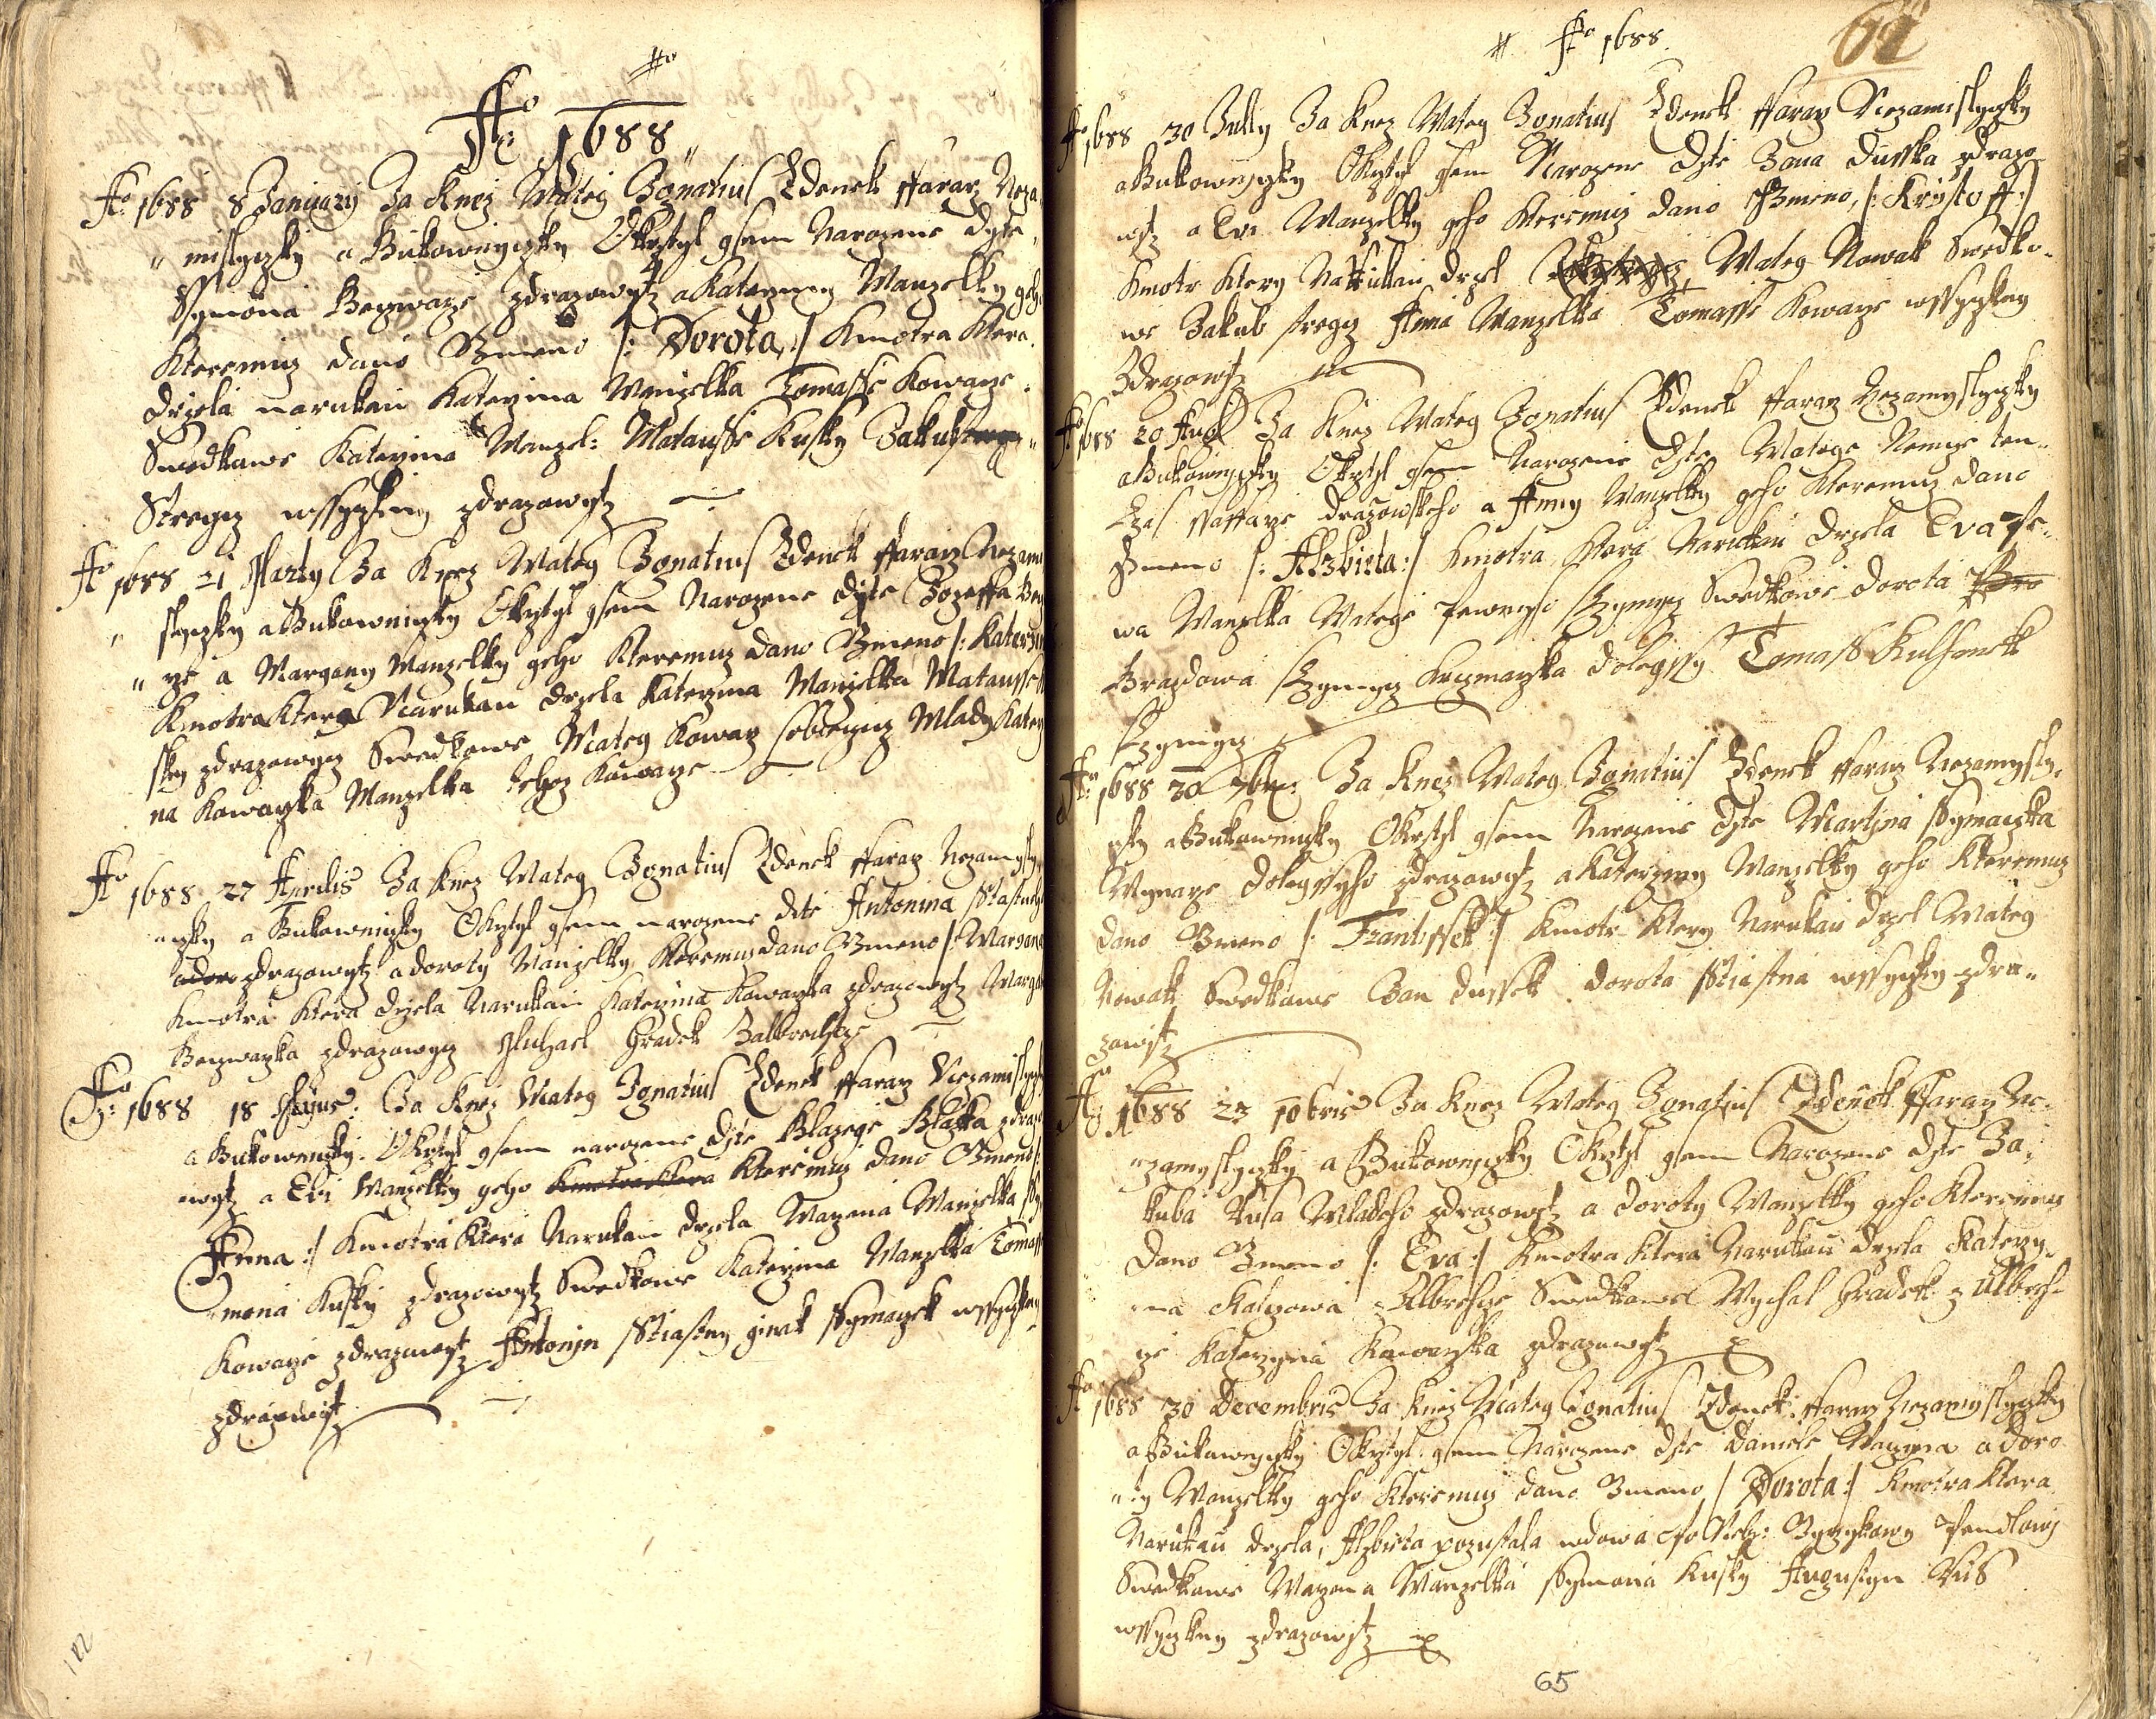 Ao
Ao 1688
Ao 1688 8 Januarij Ja Knez Mateg Jgnatius Zdenek ffararz Neza-
"mislyczky a Bukownyczky Okrztyl gsem Narozene dyte
Ssymona Bezwarze zdrazowycz a Katerzyny Manzelky geho
Kteremuz dano Jmeno /: Dorota :/ Kmotra Ktera
drzela narukau Katerzina Manzelka Tomasse Kowarze
Swedkowe Katerzina Manzel: Matausse Kusky Jakub
Stregcz wssyczkny zdrazowycz
Ao 1688 21 Marty Ja Knez Mateg Jgnatius Zdenek ffararz Nezami
"slyczky a Bukowniczky Okrztyl gsem Narozene dyte Jozeffa
"rze a Margany Manzelky geho Kteremuz dano Jmeno /: Katerzin
Kmotra Ktera Narukau drzela Katerzina Manzelka Matausse
sky zdrazowycz Swedkowe Mateg Kowarz Mlady Katerzy
na Kowarzka Manzelka tehoz Kowarze
Ao 1688 27 Aprilis Ja Knez Mateg Jgnatius Zdenek ffararz Nezamysly
"czky a Bukowniczky Okrztyl gsem narozene dite Antonina Stiastneho
zdrazowycz a doroty Manzelky Kteremuz dano Jmeno /: Margana
Kmotra Ktera drzela Narukau Katerzina Kowarzka zdrazowycz
Bezwarzka zdrazowycz Michael Hradek Zalbrechcze
Ao 1688 18 Ja Knez Mateg Jgnatius Zdenek ffararz Nezamislycz
a Bukowniczky Okrztyl gsem narozene dyte Blazege Blazka zdrazo
wycz a Evi Manzelky geho Kmotra Ktera Kteremuz dano Jmeno /:
Anna :/ Kmotra Ktera Narukau drzela Marzena Manzelka Ssy
"mona Kusky zdrazowycz Swedkowe Katerzina Manzelka Tomasse
Kowarze zdrazowycz Antonyn Stiastny ginak Ssymaczek wssyczkny
zdrazowycz
122
# Ao 1688
Ao 1688 30 July Ja Knez Mateg Jgnatius Zdenek ffararz Nezamislyczky
a Bukownyczky Okrztyl gsem Narozene dyte Jana Dusska zdrazo
wycz a Evi Manzelky geho Kteremuz dano Jmeno /: Krystoff :/
Kmotr Ktery Narukau drzel Mateg Nowak Swedko-
we Jakub stregcz Anna Manzelka Tomasse Kowarze wssyczkny
Zdrazowycz
Ao 1688 20 Aug Ja Knez Mateg Jgnatius Zdenek ffararz Nezamyslyczky
a Bukownyczky Okrztyl gsem Narozene dyte Matege Nemege ten-
czas ssaffarze drazowskeho a Anny Manzelky geho Kteremuz dano
Jmeno /: Alzbieta :/ Kmotra Ktera Narukau drzela Eva
wa Manzelka Matege Swedkowe Dorota
Brazdowa Krczmarzka dolegssy Tomass Kulhanek
Ao 1688 20 7br: Ja Knez Mateg Jgnatius Zdenek ffararz Nezamysly-
czky a Bukowniczky Okrztyl gsem Narozene dyte Martina Ssymaczka
Mlynarze dolegssyho zdrazowycz a Katerzyny Manzelky geho Kteremuz
dano Jmeno /: Frantissek :/ Kmotr Ktery Narukau drzel Mateg
Nowak Swedkowe Jan dussek dorota Stiastna wssyczkny zdra-
zowycz
Ao 1688 23 10bris Ja Knez Mateg Jgnatius Zdenek ffararz Ne-
"zamyslyczky a Bukownyczky Okrztyl gsem Narozene dyte Ja-
kuba Kusa Mladeho zdrazowycz a doroty Manzelky geho Kteremuz
dano Jmeno /: Eva :/ Kmotra Ktera Narukau drzela Katerzy-
na z Albrechcze Swedkowe Mychal Hradek z Albrech-
cze Katerzyna Kowarzka zdrazowycz
Ao 1688 30 Decembris Ja Knez Mateg Jgnatius Zdenek ffararz Nezamyslyczky
a Bukownyczky Okrztyl gsem Narozene dyte Daniele a doro
"ty Manzelky geho Kteremuz dano Jmeno /: Dorota :/ Kmotra Ktera
Narukau drzela Alzbieta pozustala wdowa po
Swedkowe Marzena Manzelka Ssymona Kusky Augustyn Kus
wssyczkny zdrazowycz
65